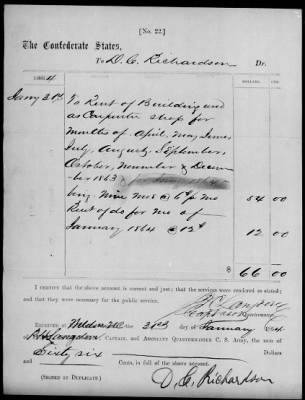 [No. 22.]
The Confederate States,
To D. C. Richardson Dr.
DOLLARS. CTS.
1864
Jany 31st To Rent of Building used
as Carpenter shop for
Months of April, May, June,
July, August, September,
October, November & Decem-
ber 1863
being Nine mos @ 6$ pr mo 54 00
Rent of do for Mo of
January 1864 @ 12$ 12 00
$ 66 00
I CERTIFY that the above account is correct and just; that the services were rendered as stated;
and that they were necessary for the public service.
Quartermaster.
RECEIVED at Weldon NC the 31st day of January 1864, of
Captain, and Assistant Quartermaster C. S. Army, the sum of
Sixty six Dollars
and Cents, in full of the above account.
(SIGNED IN DUPLICATE.)
D. C. Richardson